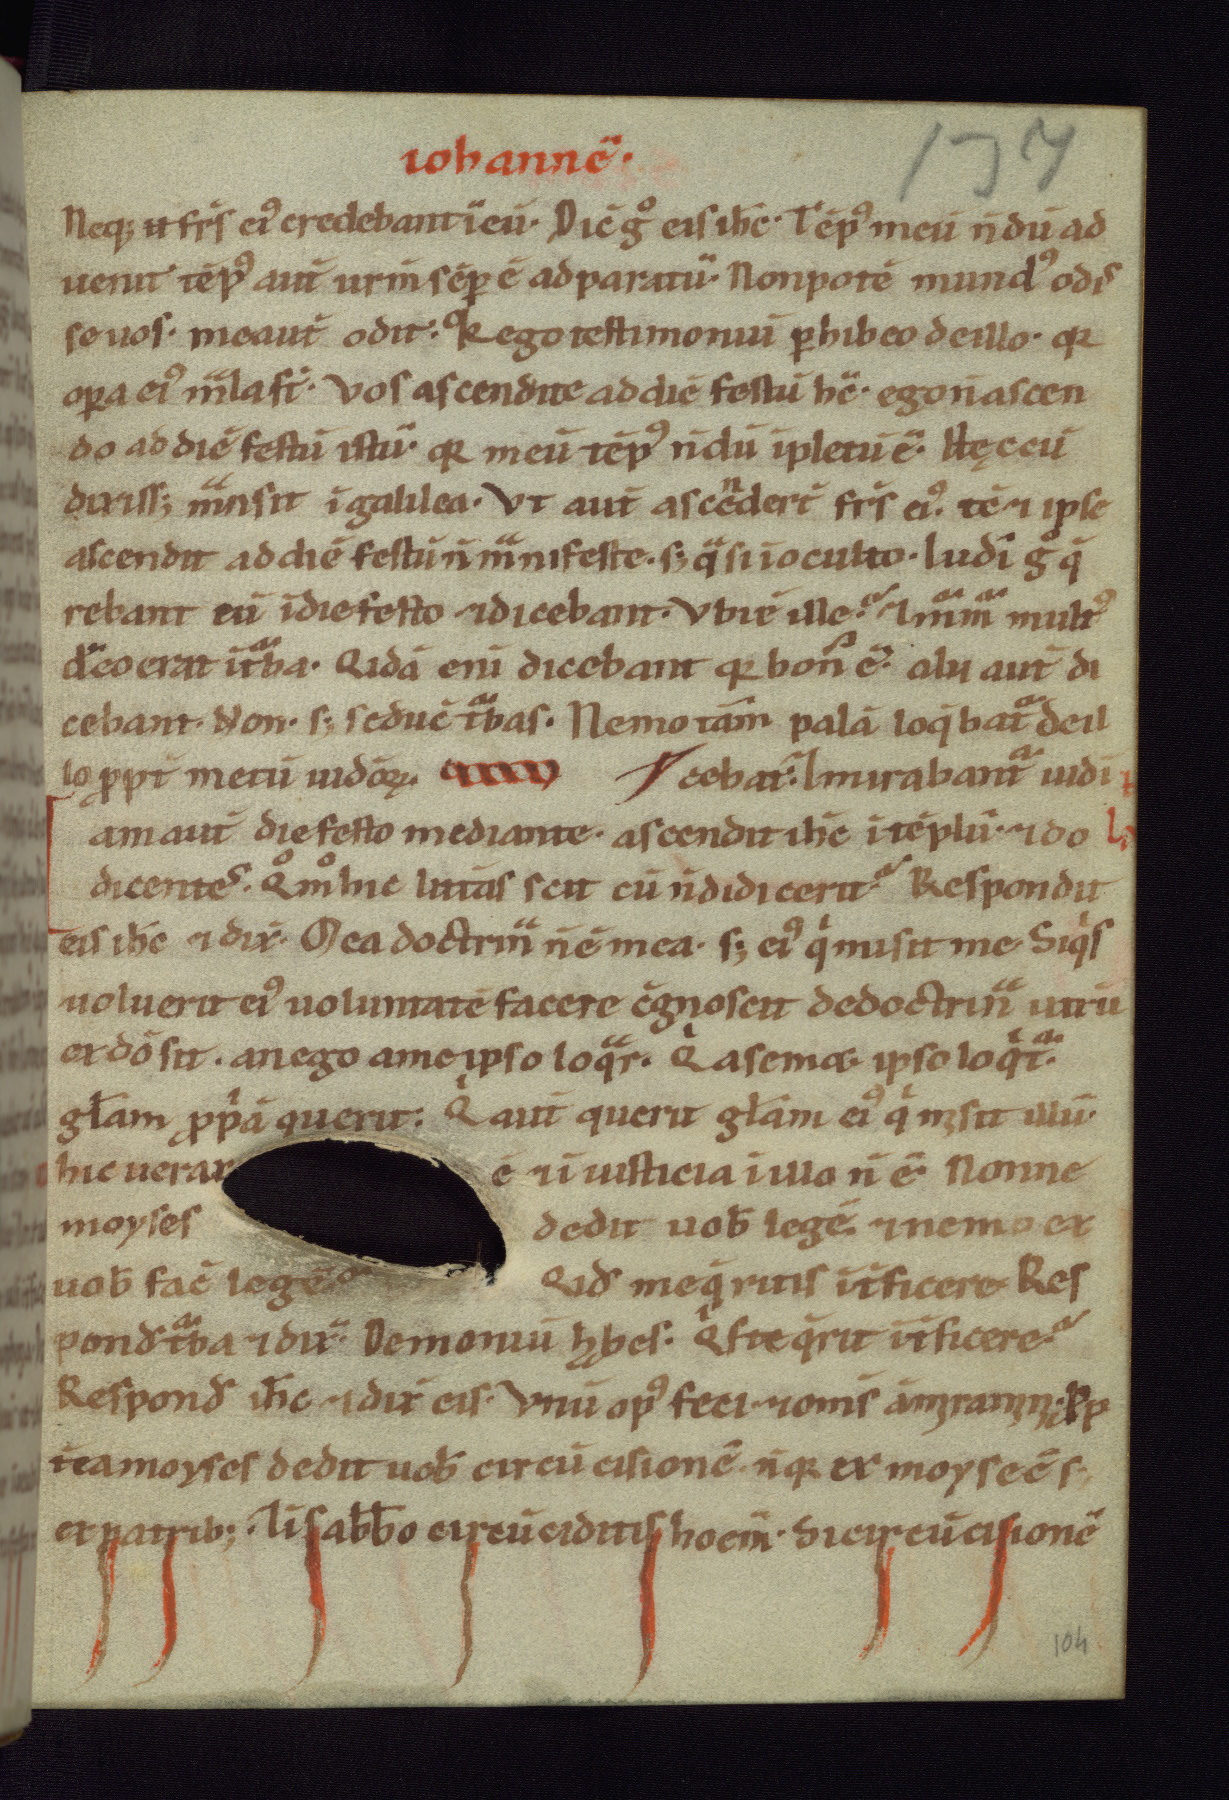 iohannē·
Neq; n̄ fr̄s ei⁹ credebant ī eū· Dic̄ gͦ eis ih̄c· Tēp⁹ meū n̄dū ad
uenit tēp⁹ aut̄ ur̄m sēp ē adparatū· Non potē mund⁹ odis
se uos· me aut̄ odit: qͥ ego testimoniū phibeo de illo· qͥ
opa ei⁹ mͣla st̄· Vos ascendite ad diē festū hc̄· ego n̄ ascen
do ad diē festū istū· qͥ meū tēp⁹ n̄dū īpletū ē· Hęc cū
dixiss; mͣnsit ī galilea· Vt aut̄ ascēnder̄t fr̄s ei⁹· tē ⁊ ipse
ascendit ad diē festū n̄ mͣnifeste· s; qͣsi ī oculto· Iudi gͦ q̄
rebant eū ī die festo ⁊ dicebant· Vbi ē ille· ⁊ mͣmͣ mult⁹
d̄ eo erat ī tͣba· Qidā eni dicebant qͥ bon⁹ ē· alii aut̄ di
cebant· Non· s; seduc̄ tͣbas· Nemo tam̄ palā loq̄batͣ de il
lo ppt̄ metū iudōꝝ· cebat: ⁊ mirabantͣ iudi
am aut̄ die festo mediante· ascendit ih̄c ī tēplū· ⁊ do
dicentes· Qͦmͦ hic litt̄as scit cū n̄ didicerit· Respondit
eis ih̄c ⁊ dix̄· Mea doctrinͣ n̄ ē mea· s; ei⁹ qͥ misit me· Siqͥs
uoluerit ei⁹ uoluntatē facere c̄gnoscit de doctrinͣ utrū
ex dō sit· an ego a me ipso loqͣr· Qͥ a semet ipso loqͥtͣ·
gl̄am pp̄ā querit: Qͥ aut̄ querit gl̄am ei⁹ qͥ misit illū·
hic uerax ē ⁊ īiusticia ī illo n̄ ē· Nonne
moyses dedit uob̄ legē· ⁊ nemo ex
uob̄ fac̄ legē· Qid me q̄ritis īt̄ficere· Res
pond̄ tͣba ⁊ dix̄· Demoniū hͣbes· Qͥs te q̄rit īt̄ficere·
Respond̄ ih̄c ⁊ dix̄ eis· Vnū op⁹ feci ⁊ om̄s āmiramini· Pp
t̄ea moyses dedit uob̄ circūcisionē· n̄ qͥ ex moyse ē s;
ex patrib;· ⁊ ī sab̄b̄o circūciditis hoem̄· Si circūcisionē
137
104